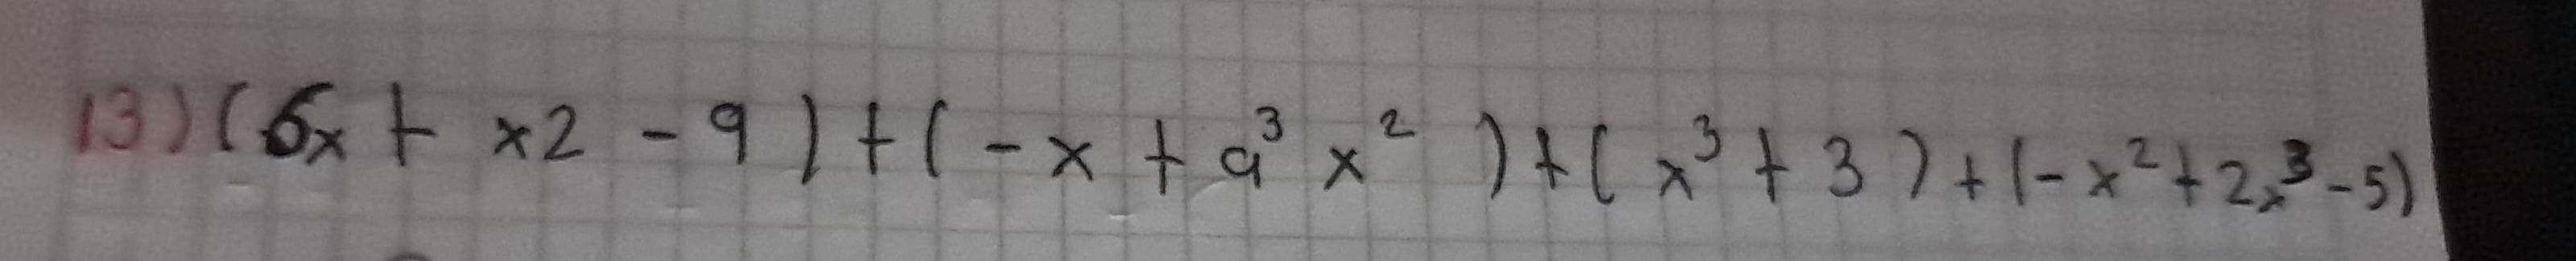 13) (6x + x2 - 9) + (-x + a³x²) + (x³ + 3) + (-x² + 2x³ - 5)